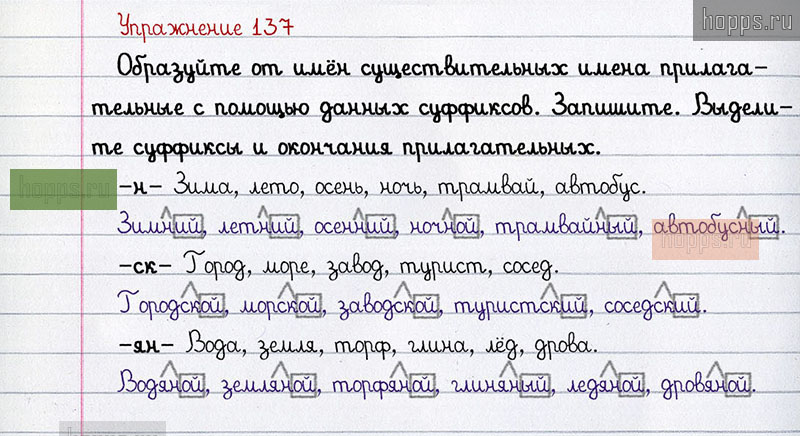 hopps.ru
Упражнение 137
Образуйте от имён существительных имена прилага-
тельные с помощью данных суффиксов. Запишите. Выдели-
те суффиксы и окончания прилагательных.
hopps.ru
-н- Зима, лето, осень, ночь, трамвай, автобус.
Зимний, летний, осенний, ночной, трамвайный, автобусный.
hopps.ru
-ск- Город, море, завод, турист, сосед.
Городской, морской, заводской, туристский, соседский.
-ян- Вода, земля, торф, глина, лёд, дрова.
Водяной, земляной, торфяной, глиняный, ледяной, дровяной.
hopps.ru